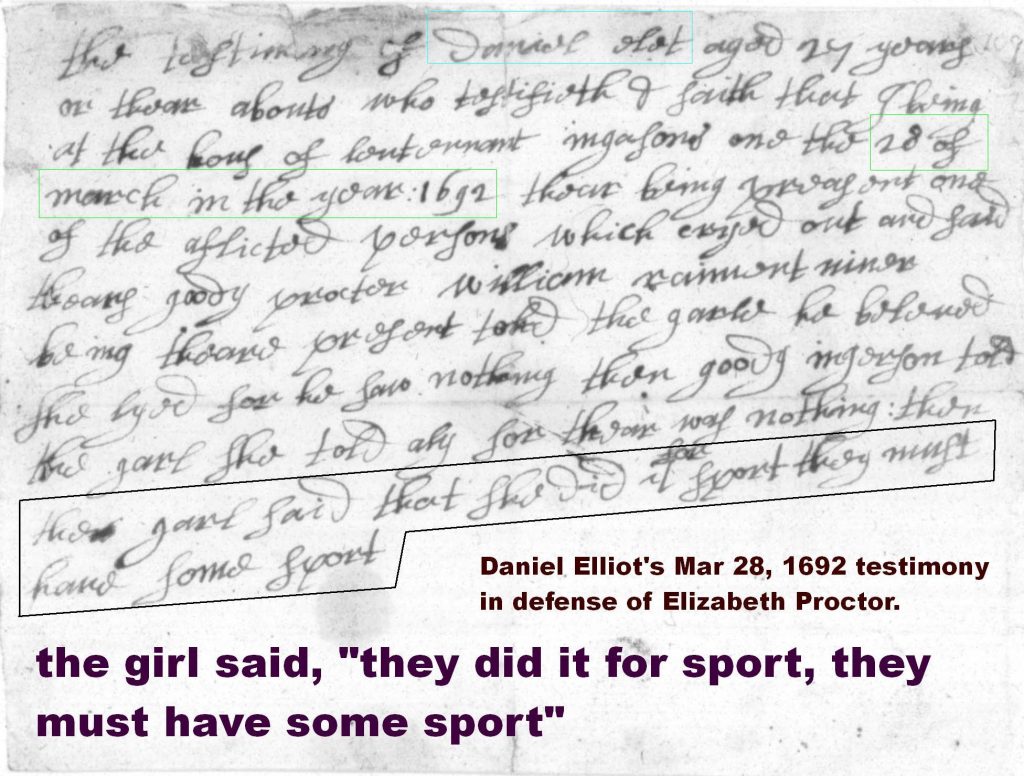 the testimony of Daniel elet aged 27 years
or thear abouts who testifieth & saith that I being
at the hous of leutennant ingasons one the 28 of
march in the year: 1692 thear being preasent one
of the aflicted persons which cryed out and said
thears goody procter William raiment niner
being theare present told the garle he beleved
she lyed for he saw nothing then goody ingerson told
the garl she told aly for thear was nothing: then
the garl said that she did it for sport they must
have some sport
Daniel Elliot's Mar 28, 1692 testimony
in defense of Elizabeth Proctor.
the girl said, "they did it for sport, they
must have some sport"